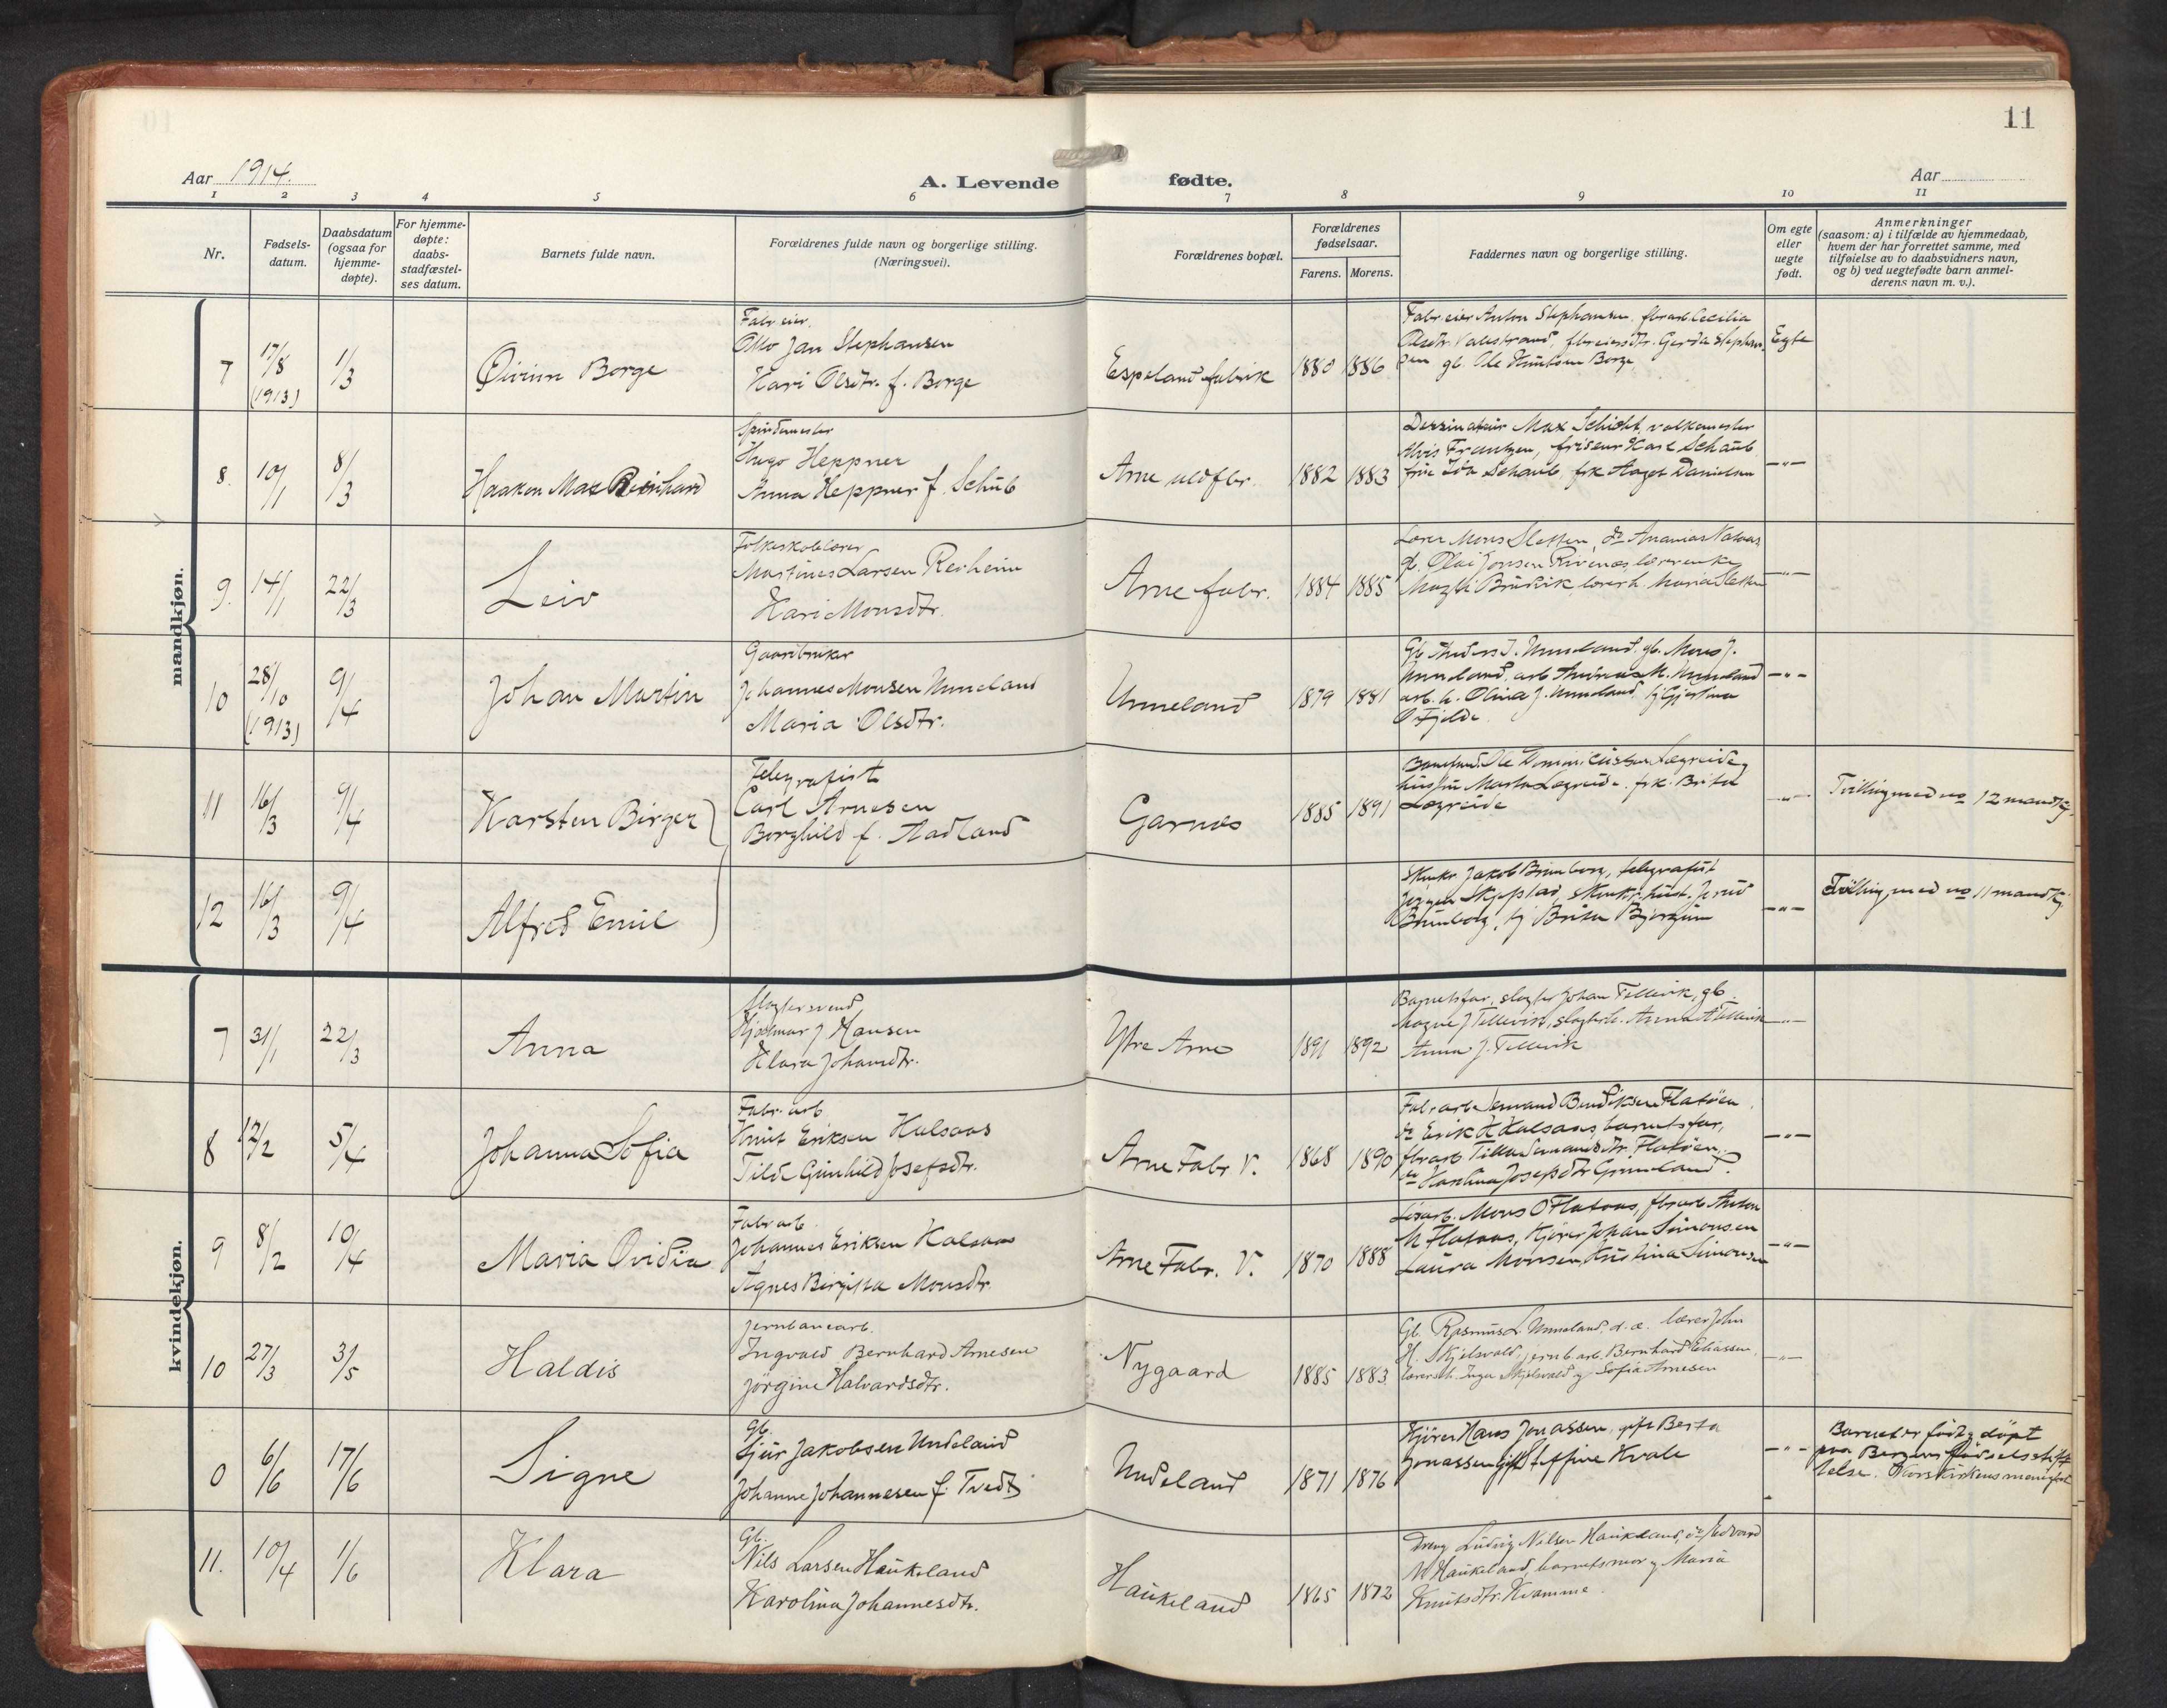 11
Aar 1914.
A. Levende fødte.
Aar
1 2 3 4 5 6 7 8 9 10 11
Nr.
Fødsels-
datum.
Daabsdatum
(ogsaa for
hjemme-
døpte).
For hjemme-
døpte:
daabs-
stadfæstel-
ses datum.
Barnets fulde navn.
Forældrenes fulde navn og borgerlige stilling.
(Næringsvei).
Forældrenes bopæl.
Forældrenes
fødselsaar.
Farens. Morens.
Faddernes navn og borgerlige stilling.
Om egte
eller
uegte
født.
Anmerkninger
(saasom: a) i tilfælde av hjemmedaab,
hvem der har forrettet samme, med
tilføielse av to daabsvidners navn,
og b) ved uegtefødte barn anmel-
derens navn m. v.).
mandkjøn.
7
17/8
(1913)
1/3
Øivinn Borge
Fabr eier.
Otto Jan Stephansen
Kari Olsdtr. f. Borge
Espeland fabrik
1880 1886
Fabr eier Anton Stephansen, fbrarb Cecilia
Olsdtr. Valestrand, fbreiersdtr. Gerda Stephan
sen gb. Ole Knutsen Borge
Egte
8.
10/1
8/3
Haakon Max Reinhard
Spindemester
Hugo Heppner
Anna Heppner f. Schub
Arne uldfbr.
1882 1883
Dessinatør Max Schicht, valkemester
Alvis Frantzen, frisenr Karl Schaub
frue Ida Schaub, frk Aagot Danielsen
—"—
9.
14/1
22/3
Leiv
Folkeskolelærer
Martines Larsen Revheim
Kari Monsdtr.
Arne fabr.
1884 1885
Lærer Mons Sletten, do Ananias
Olai Jonsen Rivenes, lærerenke
Brudvik lærerh. Maria Sletten
—"—
10
28/10
(1913)
9/4
Johan Martin
Gaardbruker
Johannes Monsen Unneland
Maria Olsdtr.
Unneland
1879 1881
Gb Anders J. Unneland. gb. Mons J.
Unneland, arb Andreas M. Unneland
arb. h. Olina J. Unneland, pj Gjertina
O Fjelde.
—"—
11
16/3
9/4
Karsten Birger
Telegrafist
Carl Arnesen
Borghild f. Aadland
Garnæs
1885 1891
Banebud. Ole Lægreid og
hustru Marta Lægreid. frk. Brita
Lægreide
—"—
Tvilling med no 12 mandkj.
12
16/3
9/4
Alfred Emil
Jakob Brunborg, telegrafist
Jørgen Skjeplad,
Brunborg, pj Brita Bjørgum
—"—
Tvilling med no 11 mandkj.
kvindekjøn.
7
31/1
22/3
Anna
Slagtersvend
Hjalmar J Hansen
Klara Johansdtr.
Ytre Arne
1891 1892
Barnetsfar, slagter Johan Tellevik, gb.
Magne J Tellevik, slagterh. Anna A Tellevik
Anna J. Tellevik
—"—
8
12/2
5/4
Johanna Sofia
Fabr. arb
Knut Eriksen Halsaas
Tilda Gunhild Josefsdtr.
Arne Fabr V.
1868 1890
Fabrarb Bendiksen Flatøen,
do Erik K Halsaas, barnetsfar,
fbrarb Tilla Flatøen,
do Karlina Josepdtr Grimeland.
—"—
9
8/2
10/4
Maria Ovidia
Fabr arb.
Johannes Eriksen Halsaas
Agnes Birgitta Monsdtr.
Arne Fabr. V.
1870 1888
Løsarb. Mons O Flataas, fbrarb Anton
M Flataas, Kjører Johan Simonsen
Laura Monsen, Kristina Simonsen
—"—
10
27/3
3/5
Haldis
Jernbanearb.
Ingvald Bernhard Arnesen
Jørgine Halvardsdtr.
Nygaard
1885 1883
Gb. Rasmus L. Unneland, d. æ. lærer John
H. Skjelsvold, jernb. arb. Bernhard Eliassen,
lærersh. Inga Skjelsvold og Sofia Arnesen
—"—
0
6/6
17/6
Signe
Gb.
Sjur Jakobsen Undeland
Johanne Johannesen f. Tvedt
Undeland
1871 1876
Kjører Hans Jonassen, gift Berta
Jonassen gift Steffine Kvale
—"—
Barnet er født og døpt
paa Bergens fødselsstift
telse. Korskirkens menighet
11.
10/4
1/6
Klara
Gb.
Nils Larsen Haukeland
Karolina Johannesdtr.
Haukeland
1865 1872
Dreng Ludvig Nilsen Haukeland, do Edvard
N Haukeland, barnetsmor og Maria
Knutsdtr. Kvamme.